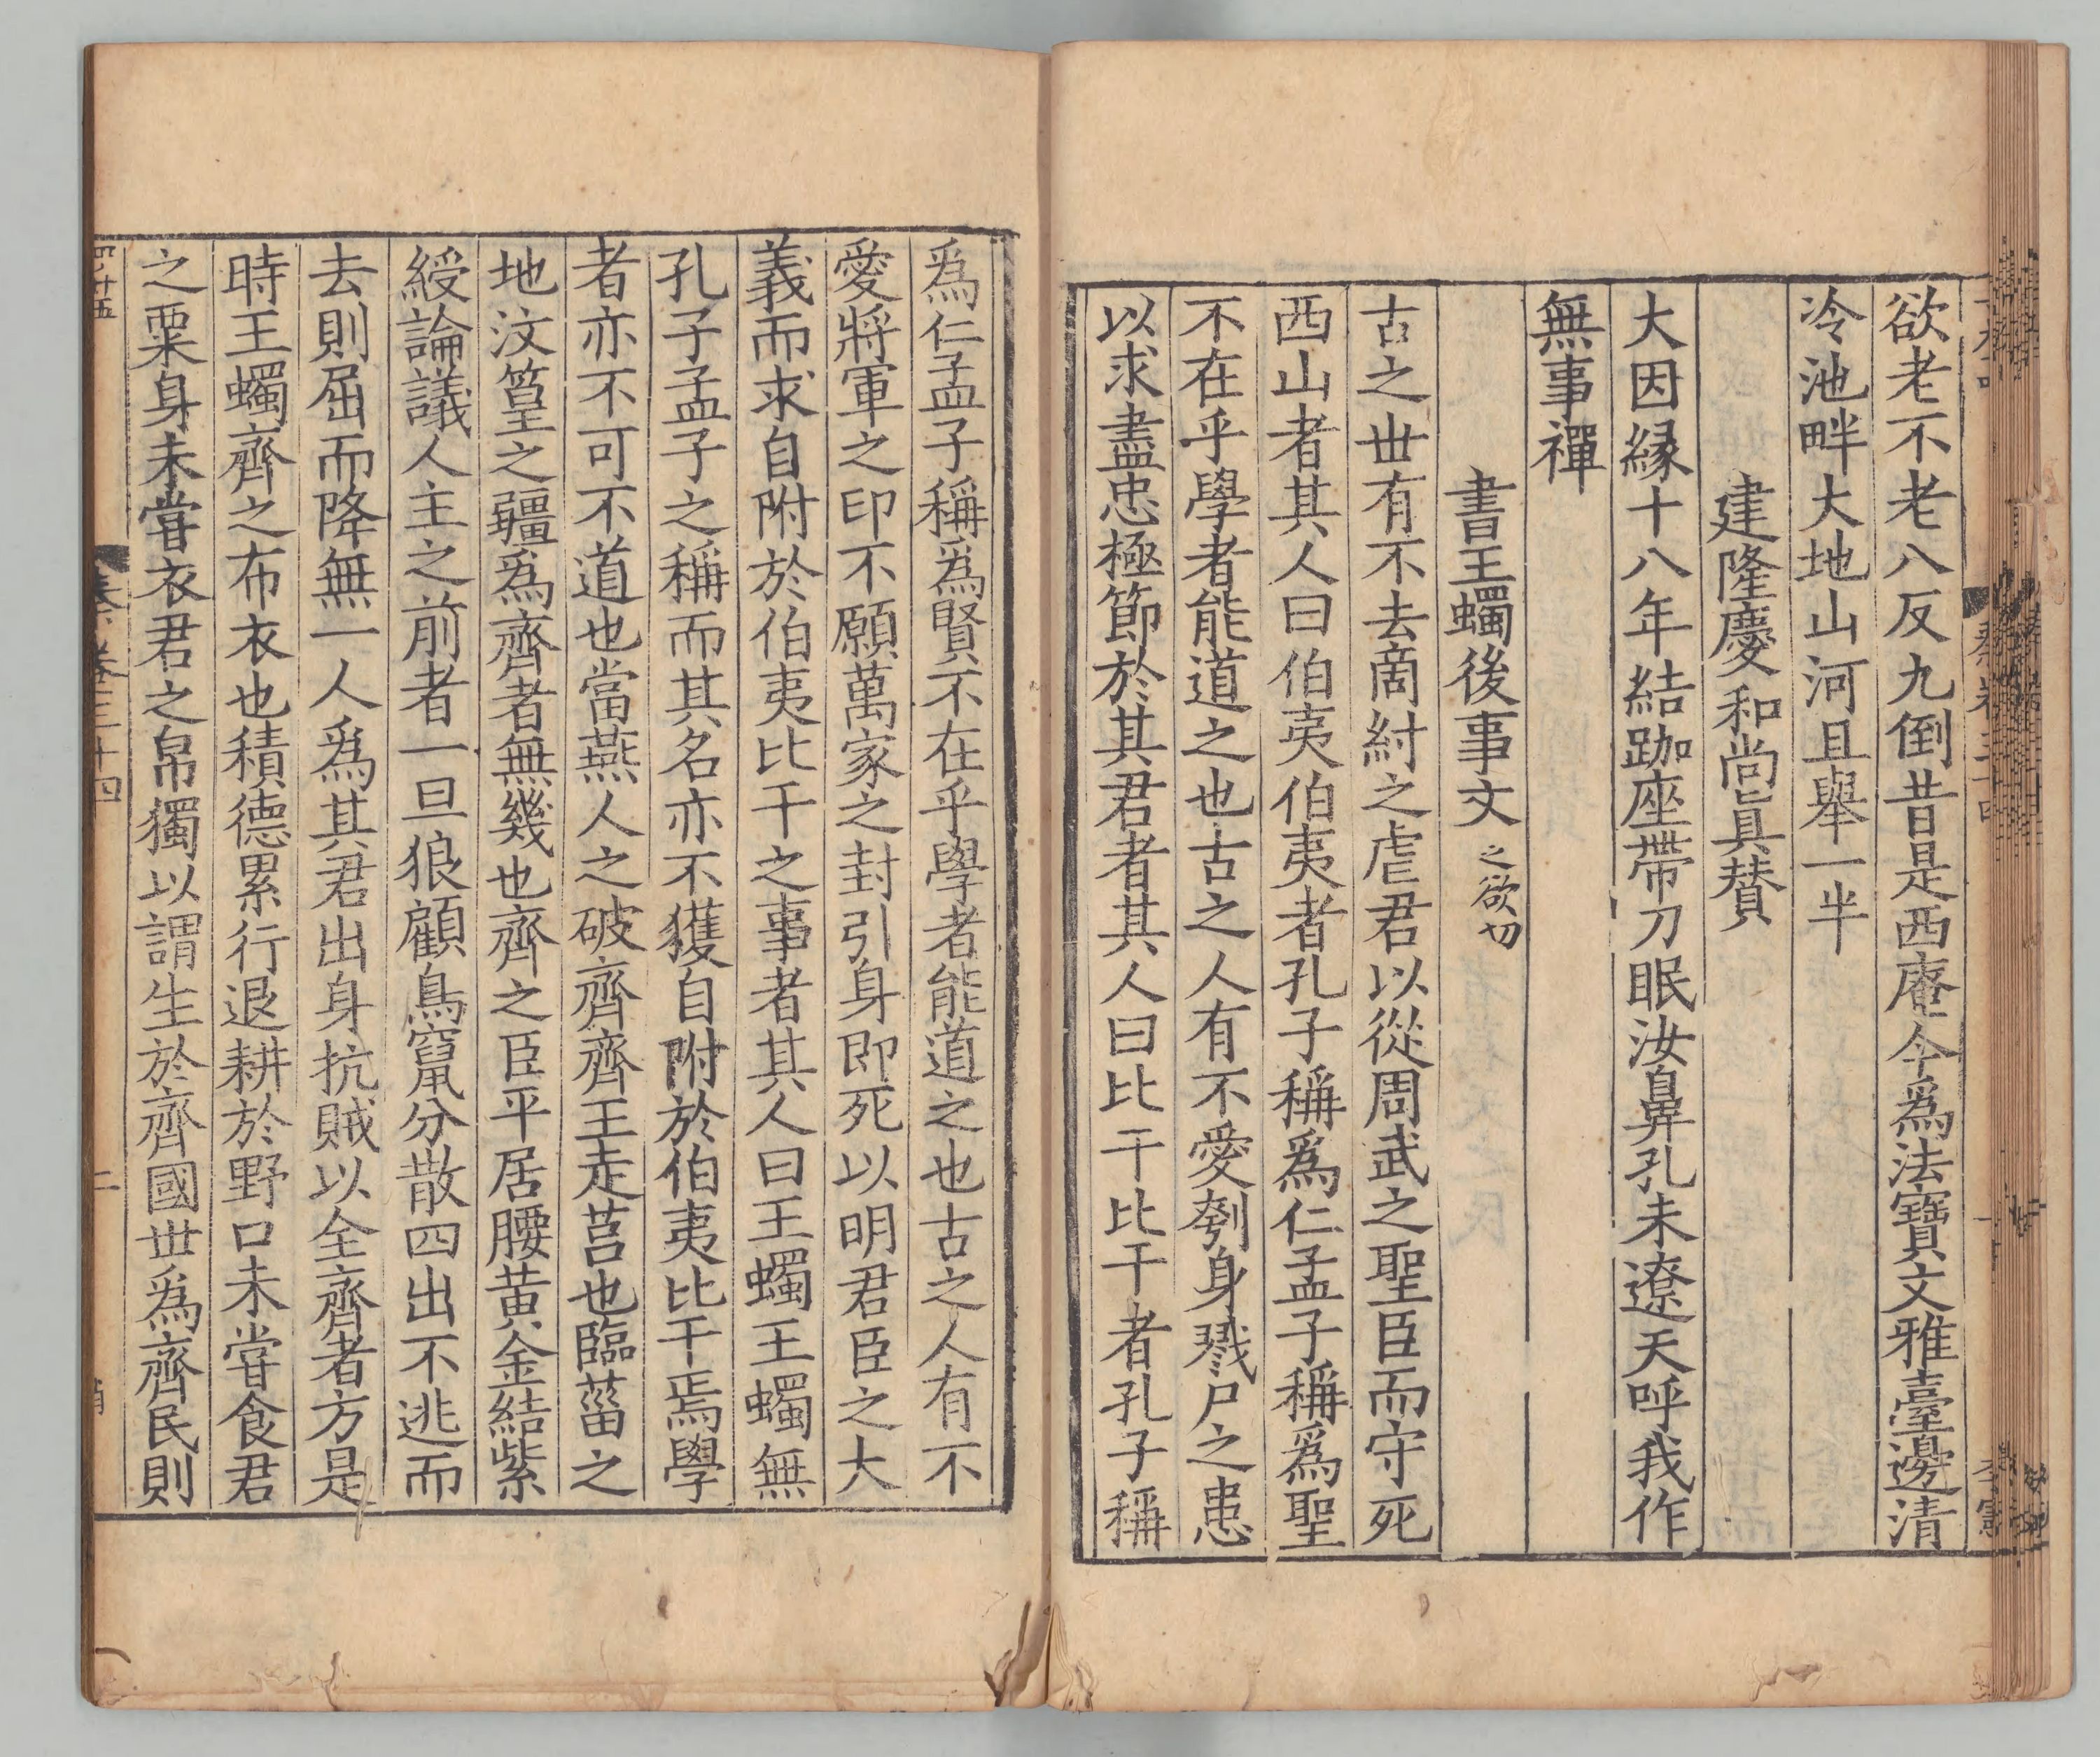 欲老不老八反九倒昔是西庵今爲法寶文雅臺邊清
冷池畔大地山河且舉一半
建隆慶和尚眞賛
大因縁十八年結跏座帶刀眠汝鼻孔未遼天呼我作
無事禪
書王蠋後事文 之欲切
古之世有不去啇紂之虐君以從周武之聖臣而守死
西山者其人曰伯夷伯夷者孔子稱爲仁孟子稱爲聖
不在乎學者能道之也古之人有不愛刳身戮尸之患
以求盡忠極節於其君者其人曰比干比干者孔子稱
爲仁孟子稱爲賢不在乎學者能道之也古之人有不
愛將軍之印不願萬家之封引身即死以明君臣之大
義而求自附於伯夷比干之事者其人曰王蠋王蠋無
孔子孟子之稱而其名亦不獲自附於伯夷比干焉學
者亦不可不道也當燕人之破齊齊王走莒也臨菑之
地汶篁之疆爲齊者無幾也齊之臣平居腰黄金結紫
綬論議人主之前者一旦狼顧鳥竄分散四出不逃而
去則屈而降無一人爲其君出身抗賊以全齊者方是
時王蠋齊之布衣也積德累行退耕於野口未甞食君
之粟身未甞衣君之帛獨以謂生於齊國世爲齊民則
卷三十四
二